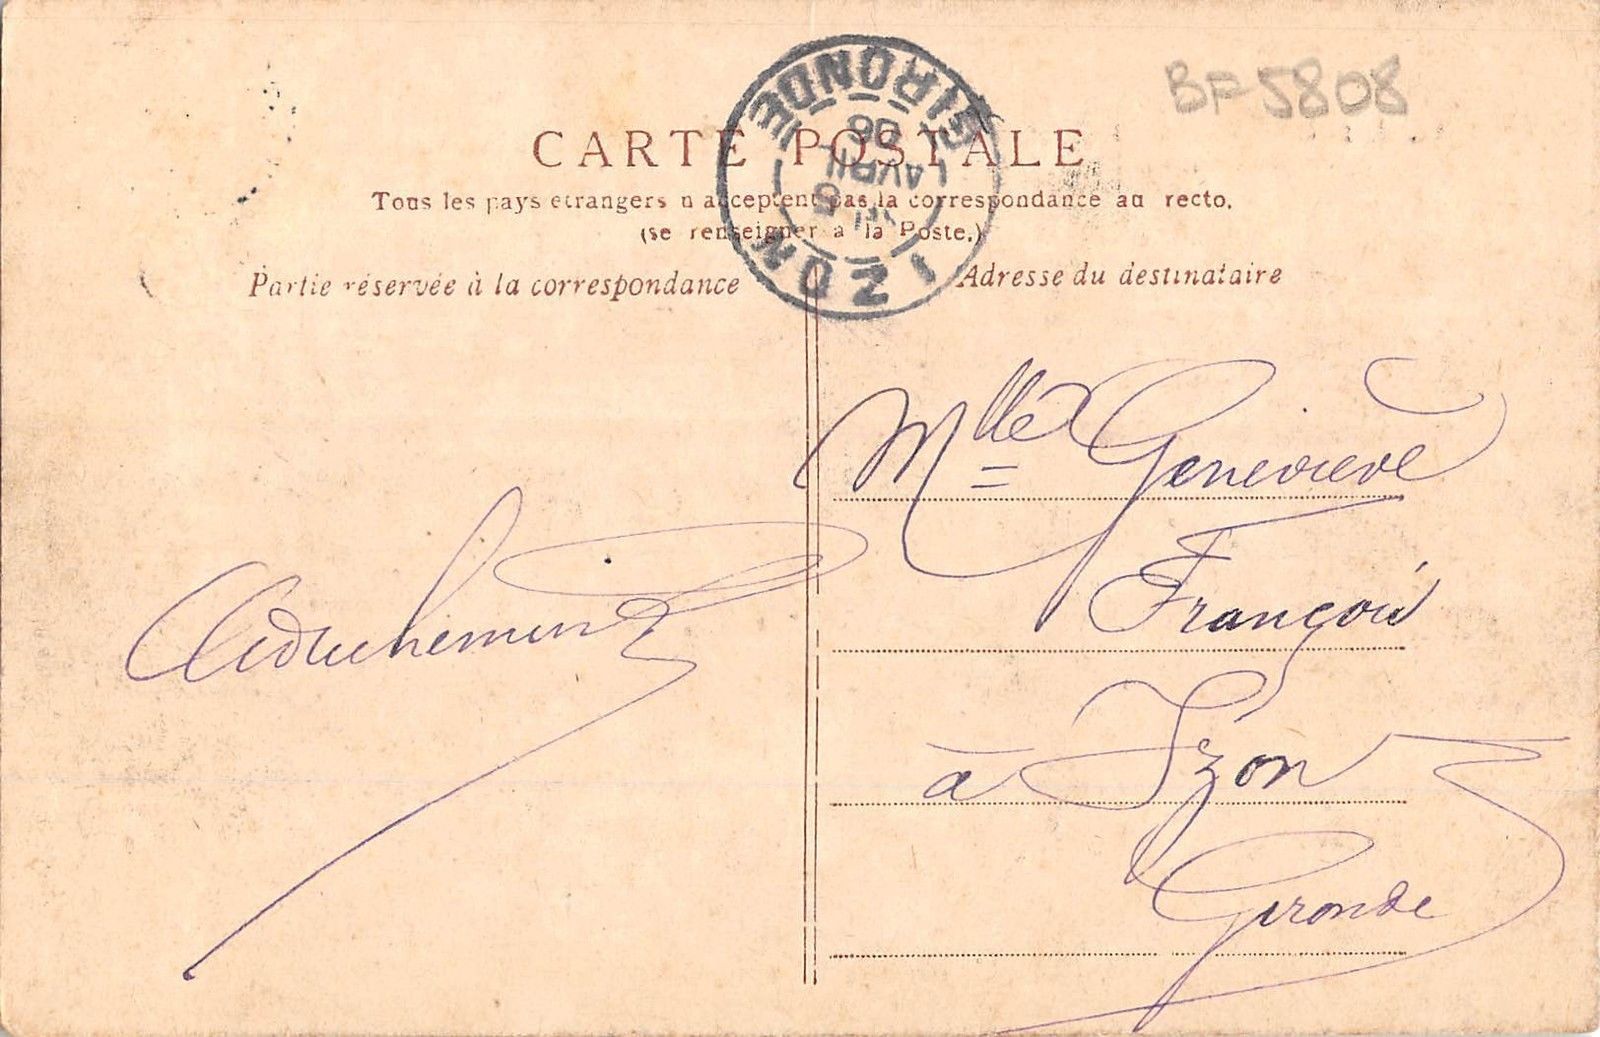 BF 5808
CARTE POSTALE
Tous les pays etrangers n acceptent pas la correspondance au recto.
(se renseigner a la Poste.)
Partie réservée à la correspondance
Adresse du destinataire
IZON
GIRONDE
5
AVRIL
06
Mlle Geneviève
François
à Izon
Gironde